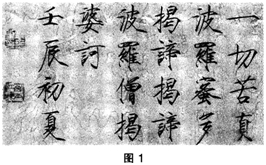 一切苦真
波羅蜜多
揭諦揭諦
波羅僧揭
婆訶
壬辰初夏
图 1